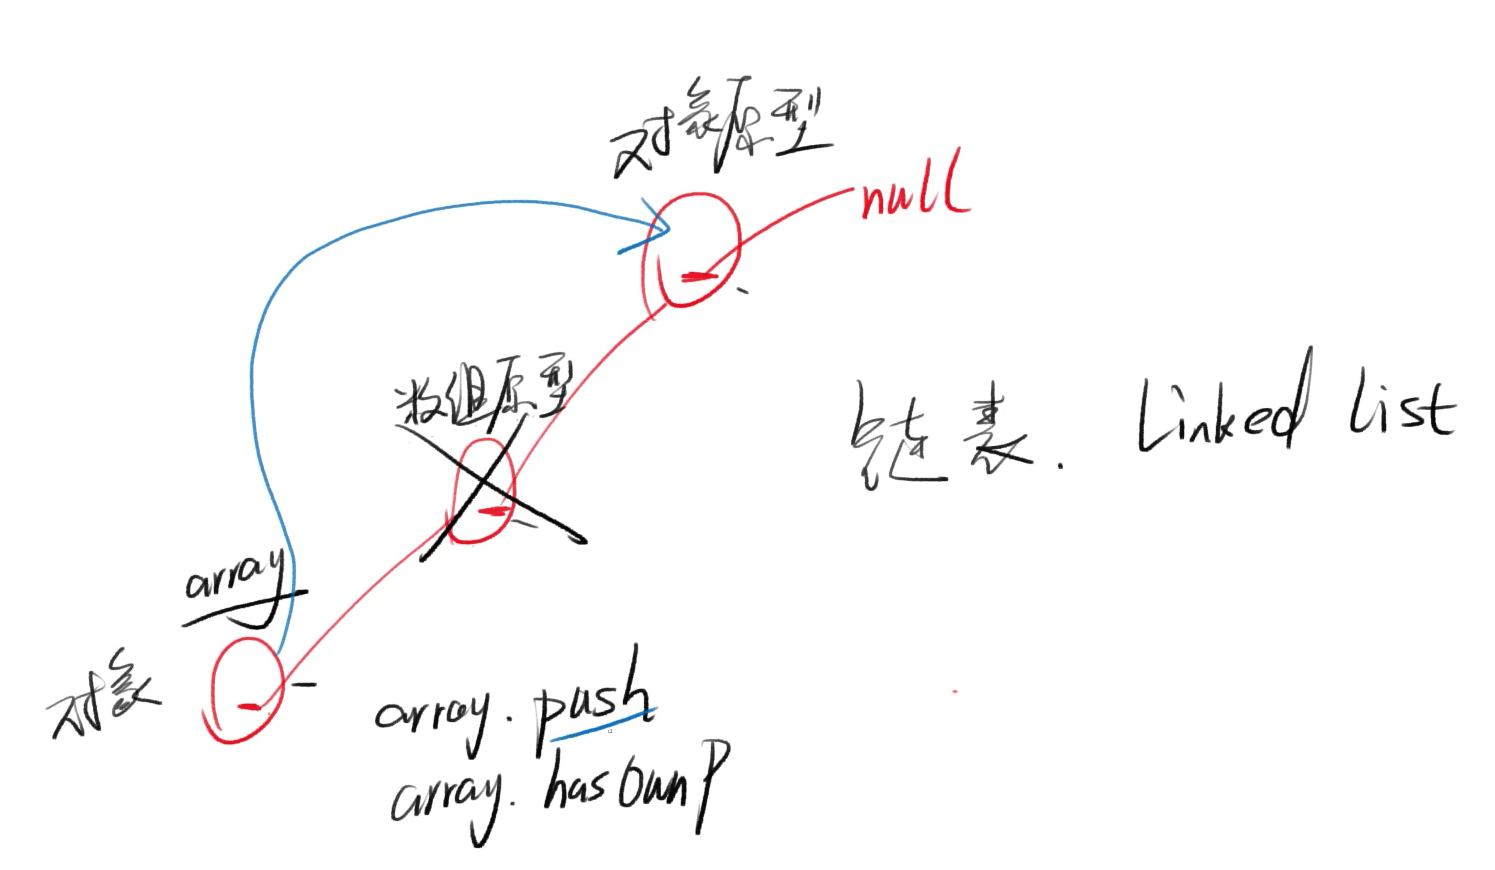 对象原型
null
数组原型
链表. Linked list
array
对象
array. push
array. hasOwnP